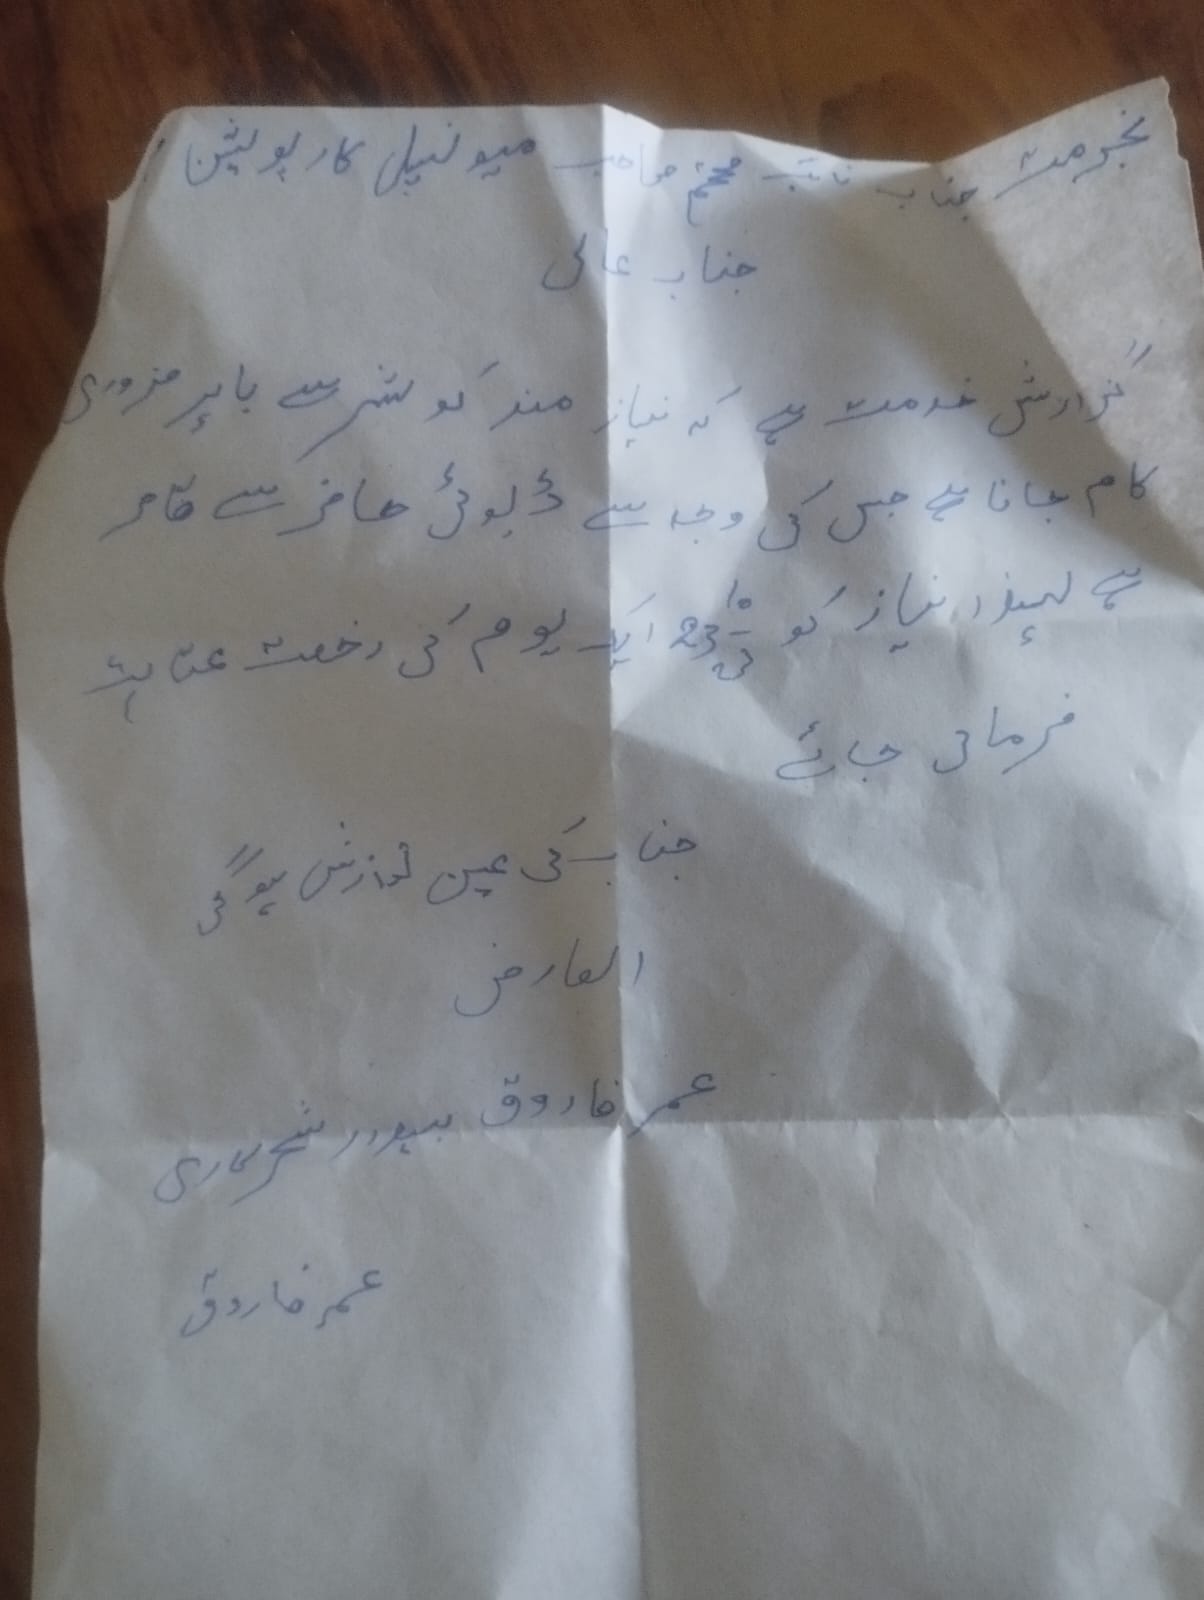 بخدمت جناب نائب مہتمم صاحب میونسپل کارپوریشن
جناب عالی
گزارش خدمت ہے کہ نیاز مند کو شہر سے باہر ضروری
کام جانا ہے جس کی وجہ سے ڈیوٹی حاضر سے قاصر
ہے لہذا نیاز کو ایک یوم کی رخصت عنایت
فرمائی جائے
جناب کی عین نوازش ہوگی
العارض
عمر فاروق
عمر فاروق